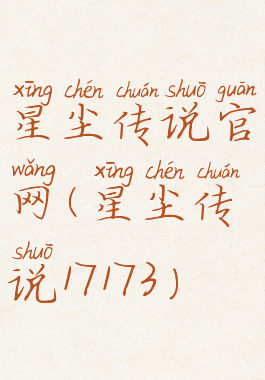 xīng chén chuán shuō guān
星尘传说官
wǎng xīng chén chuán
网(星尘传
shuō
说17173)